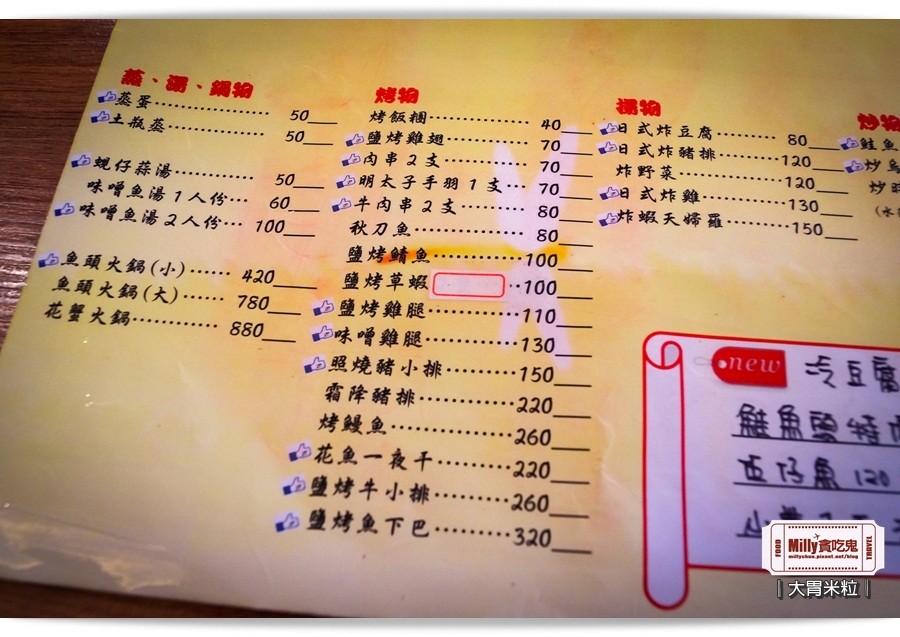 蒸、湯、鍋物
蒸蛋 50
土瓶蒸 50
蜆仔蒜湯 50
味噌魚湯1人份 60
味噌魚湯2人份 100
魚頭火鍋(小) 420
魚頭火鍋(大) 780
花蟹火鍋 880
烤物
烤飯糰 40
鹽烤雞翅 70
肉串2支 70
明太子手羽1支 70
牛肉串2支 80
秋刀魚 80
鹽烤鯖魚 100
鹽烤草蝦 100
鹽烤雞腿 110
味噌雞腿 130
照燒豬小排 150
霜降豬排 220
烤鰻魚 260
花魚一夜干 220
鹽烤牛小排 260
鹽烤魚下巴 320
揚物
日式炸豆腐 80
日式炸豬排 120
炸野菜 120
日式炸雞 130
炸蝦天婦羅 150
炒物
鮭魚
炒烏
炒時
new
豆腐
鮭魚頭
仔魚 120
FOOD
Milly貪吃鬼
millychun.pixnet.net/blog
TRAVEL
大胃米粒